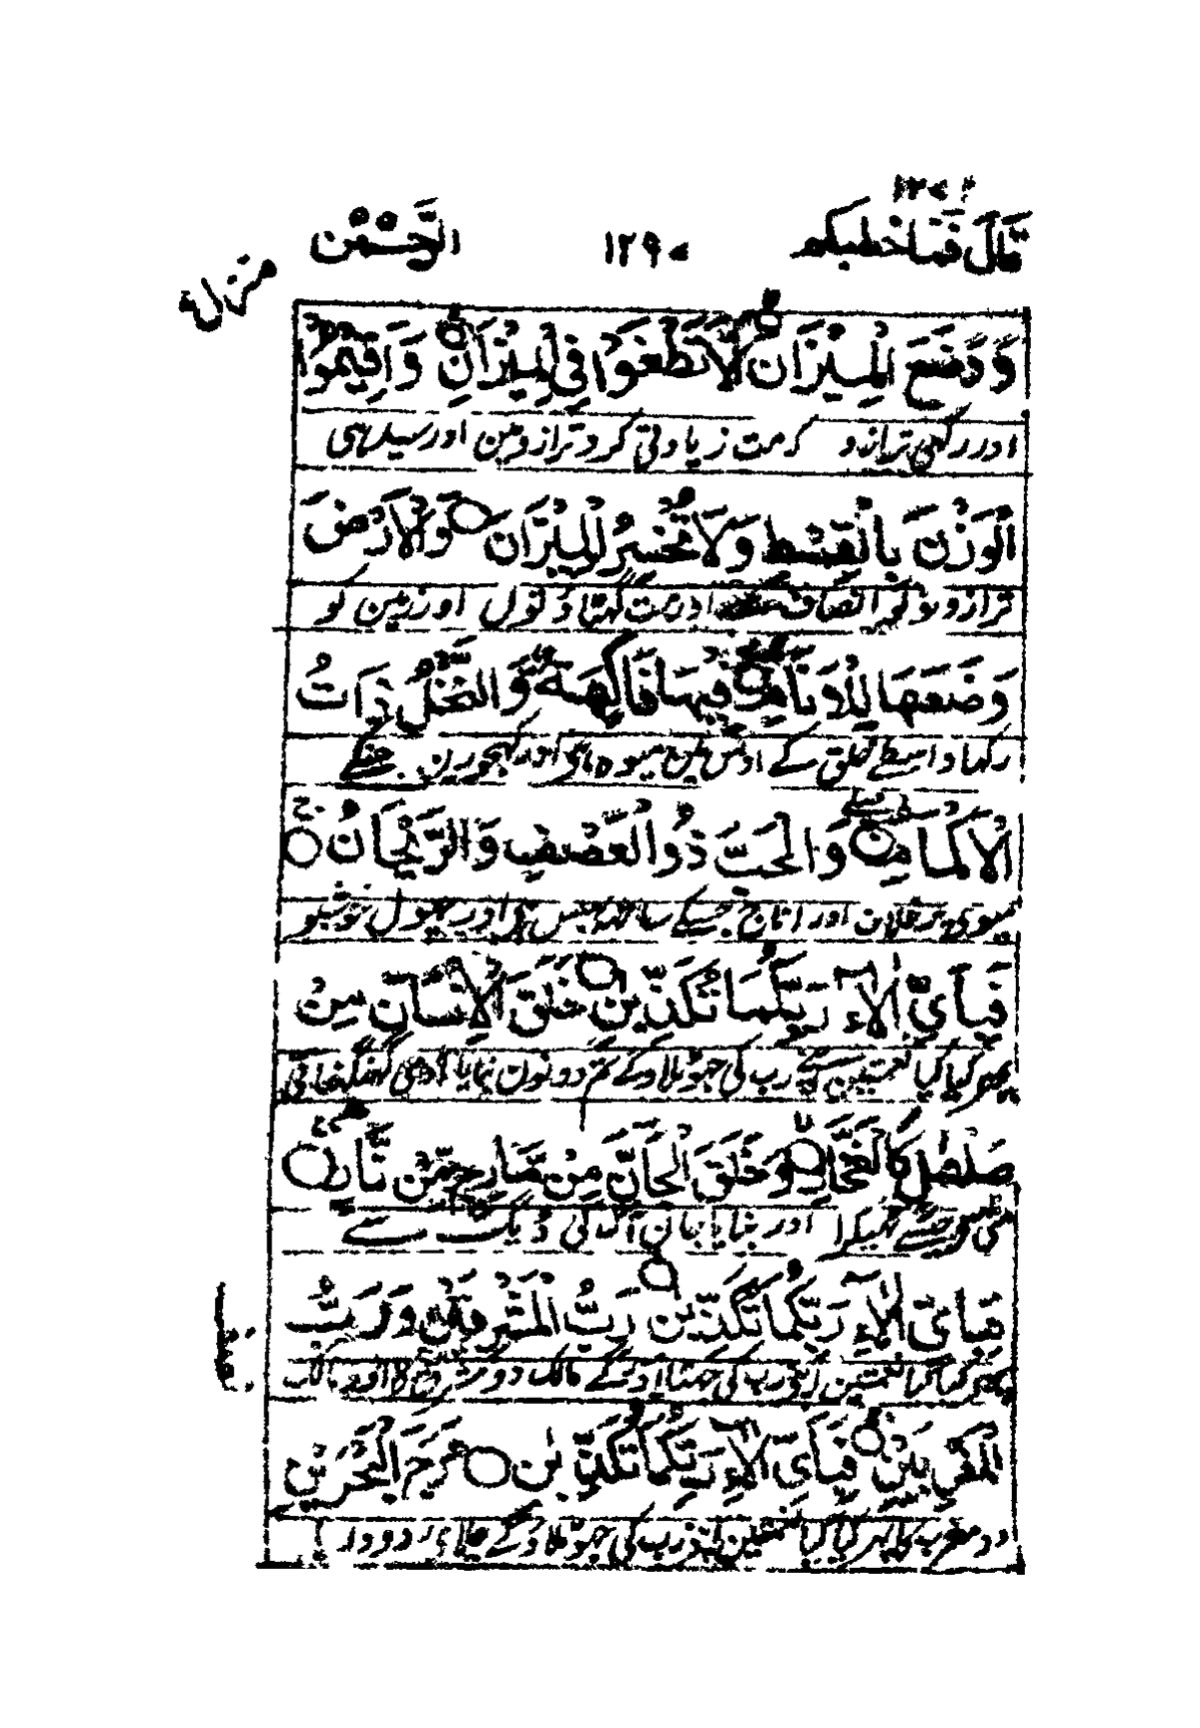 قال فما خطبكم ١٢٩٠ الرحمن
وَوَضَعَ الْمِيْزَانَ اَلَّا تَطْغَوْا فِي الْمِيْزَانِ وَاَقِيْمُوا
اور رکھی ترازو کہ مت زیادتی کرو ترازو مین اور سیدهی
الْوَزْنَ بِالْقِسْطِ وَلَا تُخْسِرُوا الْمِيْزَانَ وَالْاَرْضَ
ترازو تولو انصاف اور مت گهٹاؤ تول اور زمین کو
وَضَعَهَا لِلْاَنَامِ فِيْهَا فَاكِهَةٌ وَّالنَّخْلُ ذَاتُ
رکها واسطے خلق کے اوس مین میوہ ہی اور کهجورین جنکے
الْاَكْمَامِ وَالْحَبُّ ذُو الْعَصْفِ وَالرَّيْحَانُ
میوی پر غلاف اور اناج جسکے ساتهہ بهس ہی اور پهول خوشبو
فَبِاَيِّ اٰلَآءِ رَبِّكُمَا تُكَذِّبٰنِ خَلَقَ الْاِنْسَانَ مِنْ
پهر کیا کیا نعمتین اپنے رب کی جهوٹلاوگے تم دونون بنایا آدمی کهنکهناتی
صَلْصَالٍ كَالْفَخَّارِ وَخَلَقَ الْجَانَّ مِنْ مَّارِجٍ مِّنْ نَّارٍ
مٹی سے جیسے ٹهیکرا اور بنایا جان آگ کی سے
فَبِاَيِّ اٰلَآءِ رَبِّكُمَا تُكَذِّبٰنِ رَبُّ الْمَشْرِقَيْنِ وَرَبُّ
پهر کیا کیا نعمتین اپنی رب کی جهٹلاؤ گے مالک دو مشرق کا اور مالک
الْمَغْرِبَيْنِ فَبِاَيِّ اٰلَآءِ رَبِّكُمَا تُكَذِّبٰنِ مَرَجَ الْبَحْرَيْنِ
دو مغرب کا پهر کیا کیا نعمتین اپنے رب کی جهوٹلاؤ گے چلائے دو